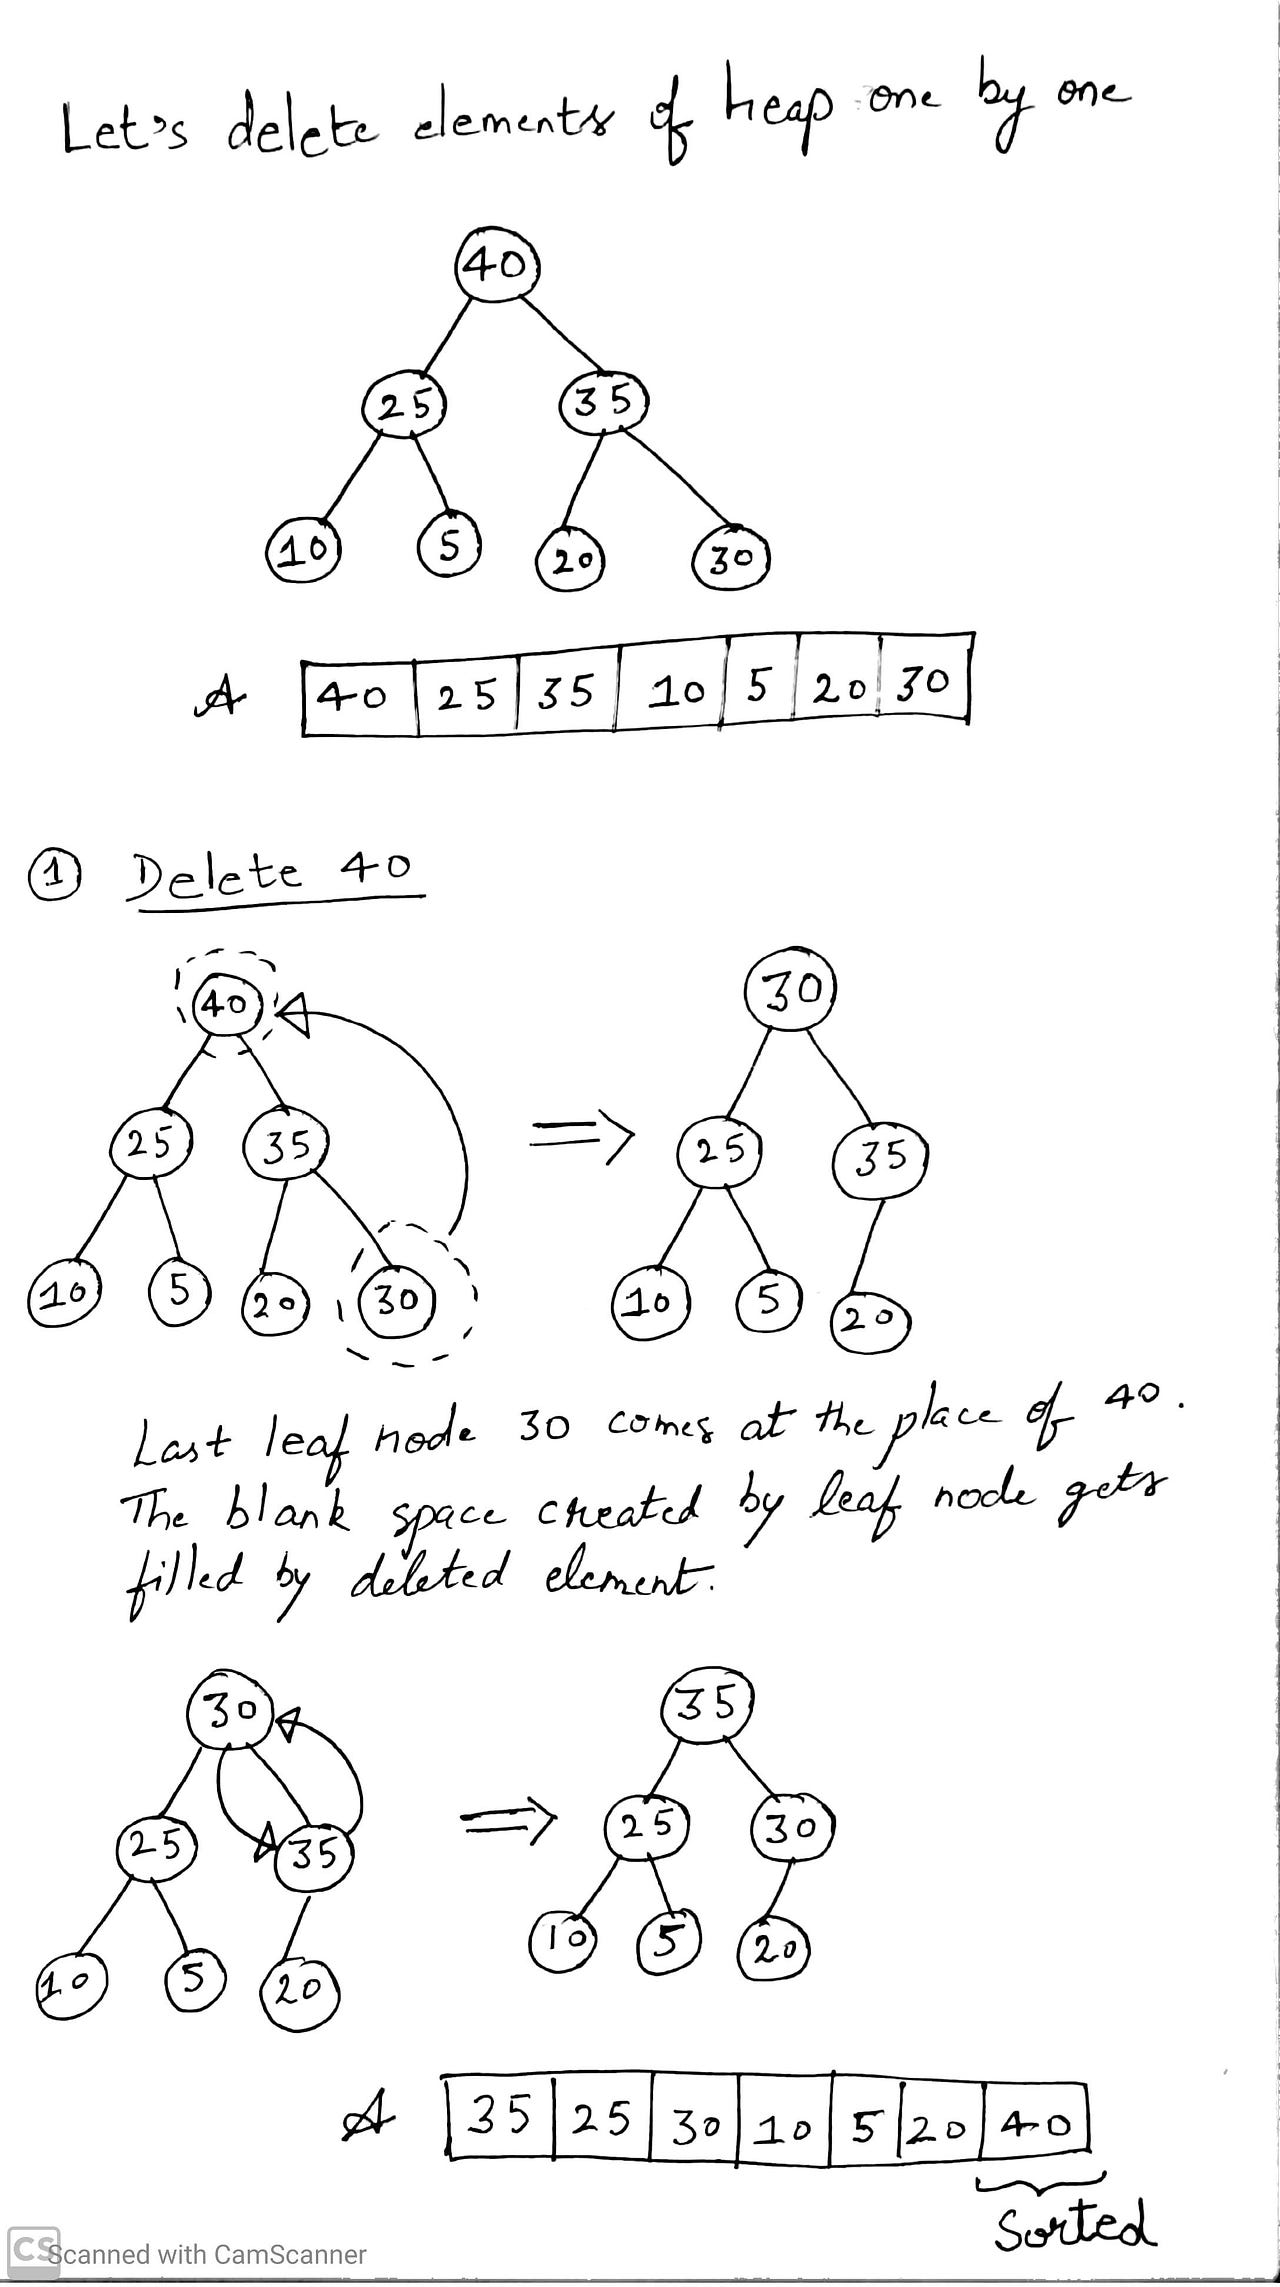 Let's delete elements of heap one by one
40
25 35
10 5 20 30
A 40 25 35 10 5 20 30
1 Delete 40
40 30
25 35 25 35
10 5 20 30 10 5 20
Last leaf node 30 comes at the place of 40.
The blank space created by leaf node gets
filled by deleted element.
30 35
25 35 25 30
10 5 20 10 5 20
A 35 25 30 10 5 20 40
Sorted
CS Scanned with CamScanner